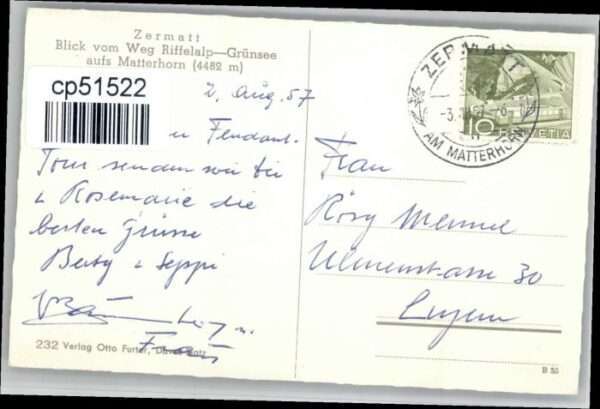 Zermatt
Blick vom Weg Riffelalp—Grünsee
aufs Matterhorn (4482 m)
cp51522
2. Aug. 57
Fendant-
Tour senden wir dir
& Rosemarie die
besten Grüsse
Betsy & Seppi
Frau
Rösy Mennel
Ulmenstrasse 30
Luzern
232 Verlag Otto Furter, Davos-Platz
B 50
ZERMATT
AM MATTERHORN
10 HELVETIA